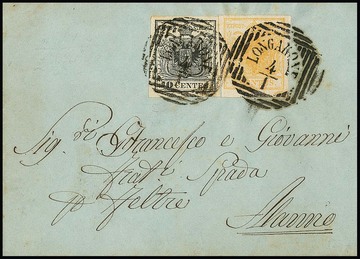 10 CENTES
LONGARONE
4/1
Sig.ri Francesco e Giovanni
frat.i Spada
p Feltre
Alanno